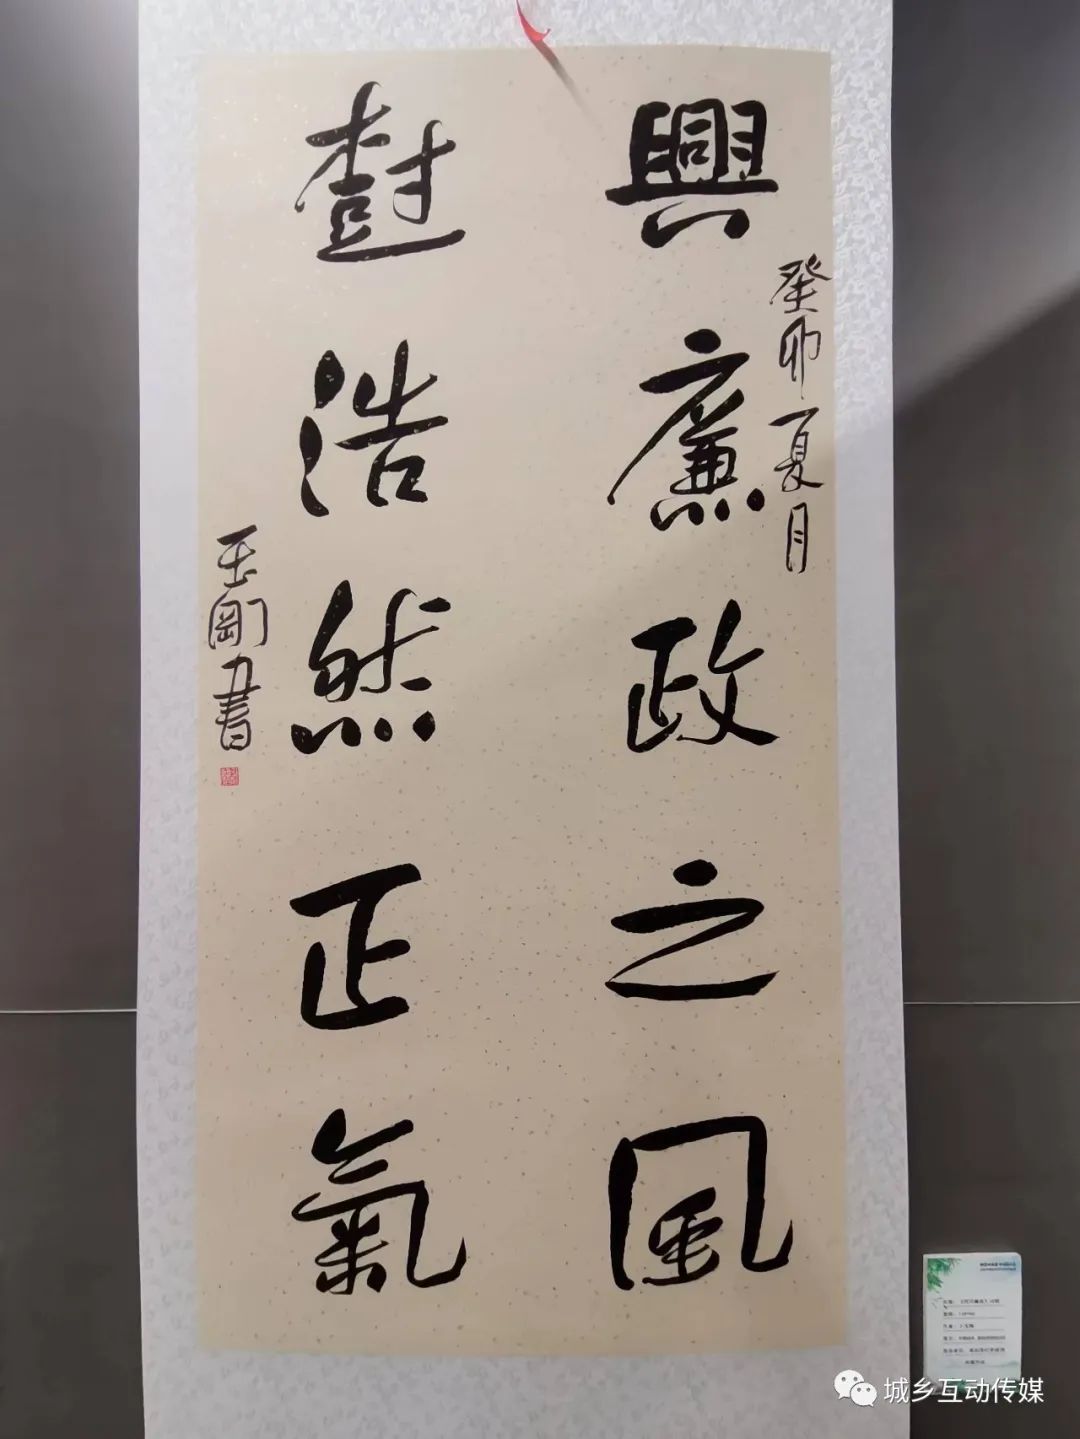 興廉政之風
樹浩然正氣
癸卯夏月
玉剛書
城乡互动传媒